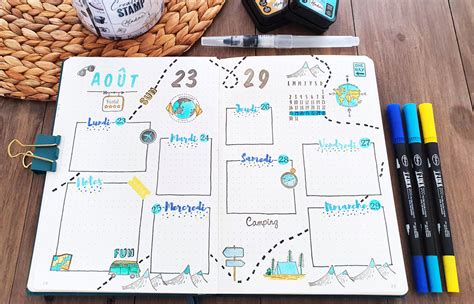 STAMP
AOÛT
23
29
SUN
Lundi 23
Mardi 24
Notes
25 Mercredi
FUN
Jeudi 26
Vendredi 27
Samedi 28
Dimanche 29
Camping